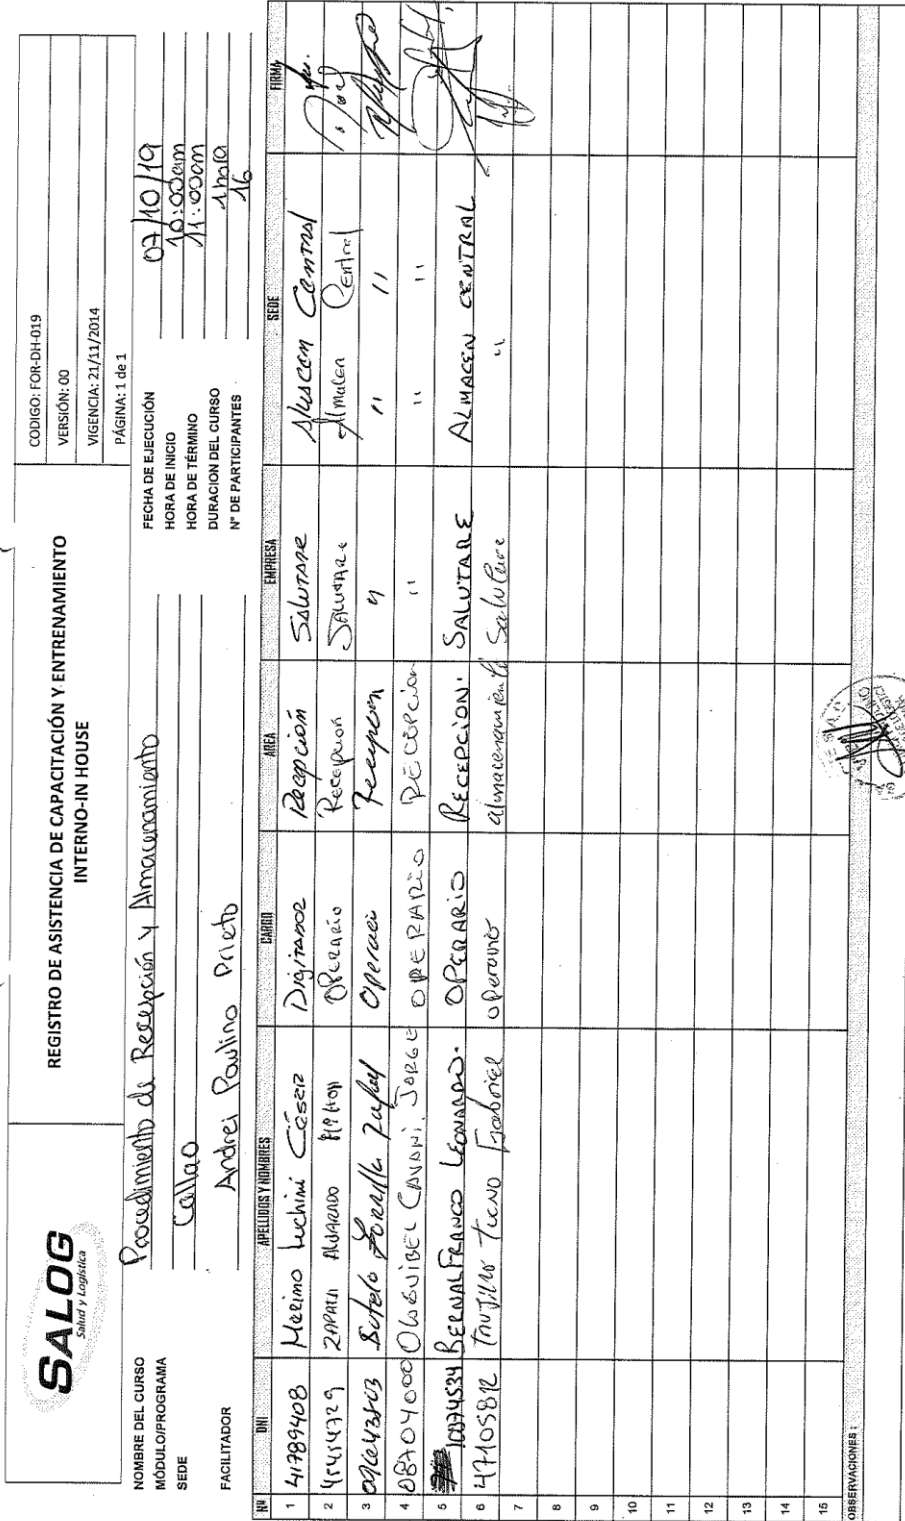 SALOG
Salud y Logística
REGISTRO DE ASISTENCIA DE CAPACITACIÓN Y ENTRENAMIENTO
INTERNO-IN HOUSE
CODIGO: FOR-DH-019
VERSIÓN: 00
VIGENCIA: 21/11/2014
PÁGINA: 1 de 1
NOMBRE DEL CURSO Procedimiento de Recepción y Almacenamiento
MÓDULO/PROGRAMA
SEDE Callao
FACILITADOR Andrei Paulino Prieto
FECHA DE EJECUCIÓN 07/10/19
HORA DE INICIO 10:00am
HORA DE TÉRMINO 11:00am
DURACION DEL CURSO 1 hora
N° DE PARTICIPANTES 16
Nº DNI APELLIDOS Y NOMBRES CARGO AREA EMPRESA SEDE FIRMA
1 41789408 Merino Luchini César Digitador Recepción Salutare Almacen Central
2 45454729 ZAPATA ALVARADO OPERARIO Recepcion SALUTARE Almacen Central
3 Sotelo Zorrilla Rafael Operaei Recepcion " " "
4 08704000 OLGUIBEL CAVANI, JORGE OPERARIO RECEPCION " " "
5 10374534 BERNAL FRANCO LEONARDO. OPERARIO RECEPCION. SALUTARE ALMACEN CENTRAL
6 47105812 Trujillo Tucno Gabriel operario almacenamiento Salutare "
7
8
9
10
11
12
13
14
15
OBSERVACIONES :